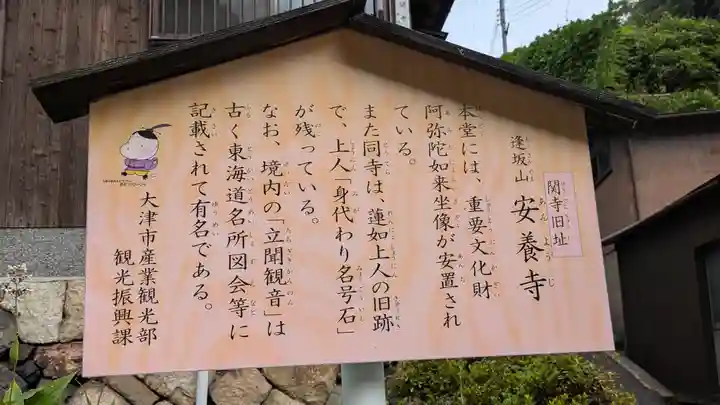 関寺旧址
逢坂山 安養寺
本堂には、重要文化財
阿弥陀如来坐像が安置され
ている。
また同寺は、蓮如上人の旧跡
で、上人「身代わり名号石」
が残っている。
なお、境内の「立聞観音」は
古く東海道名所図会等に
記載されて有名である。
大津市産業観光部
観光振興課